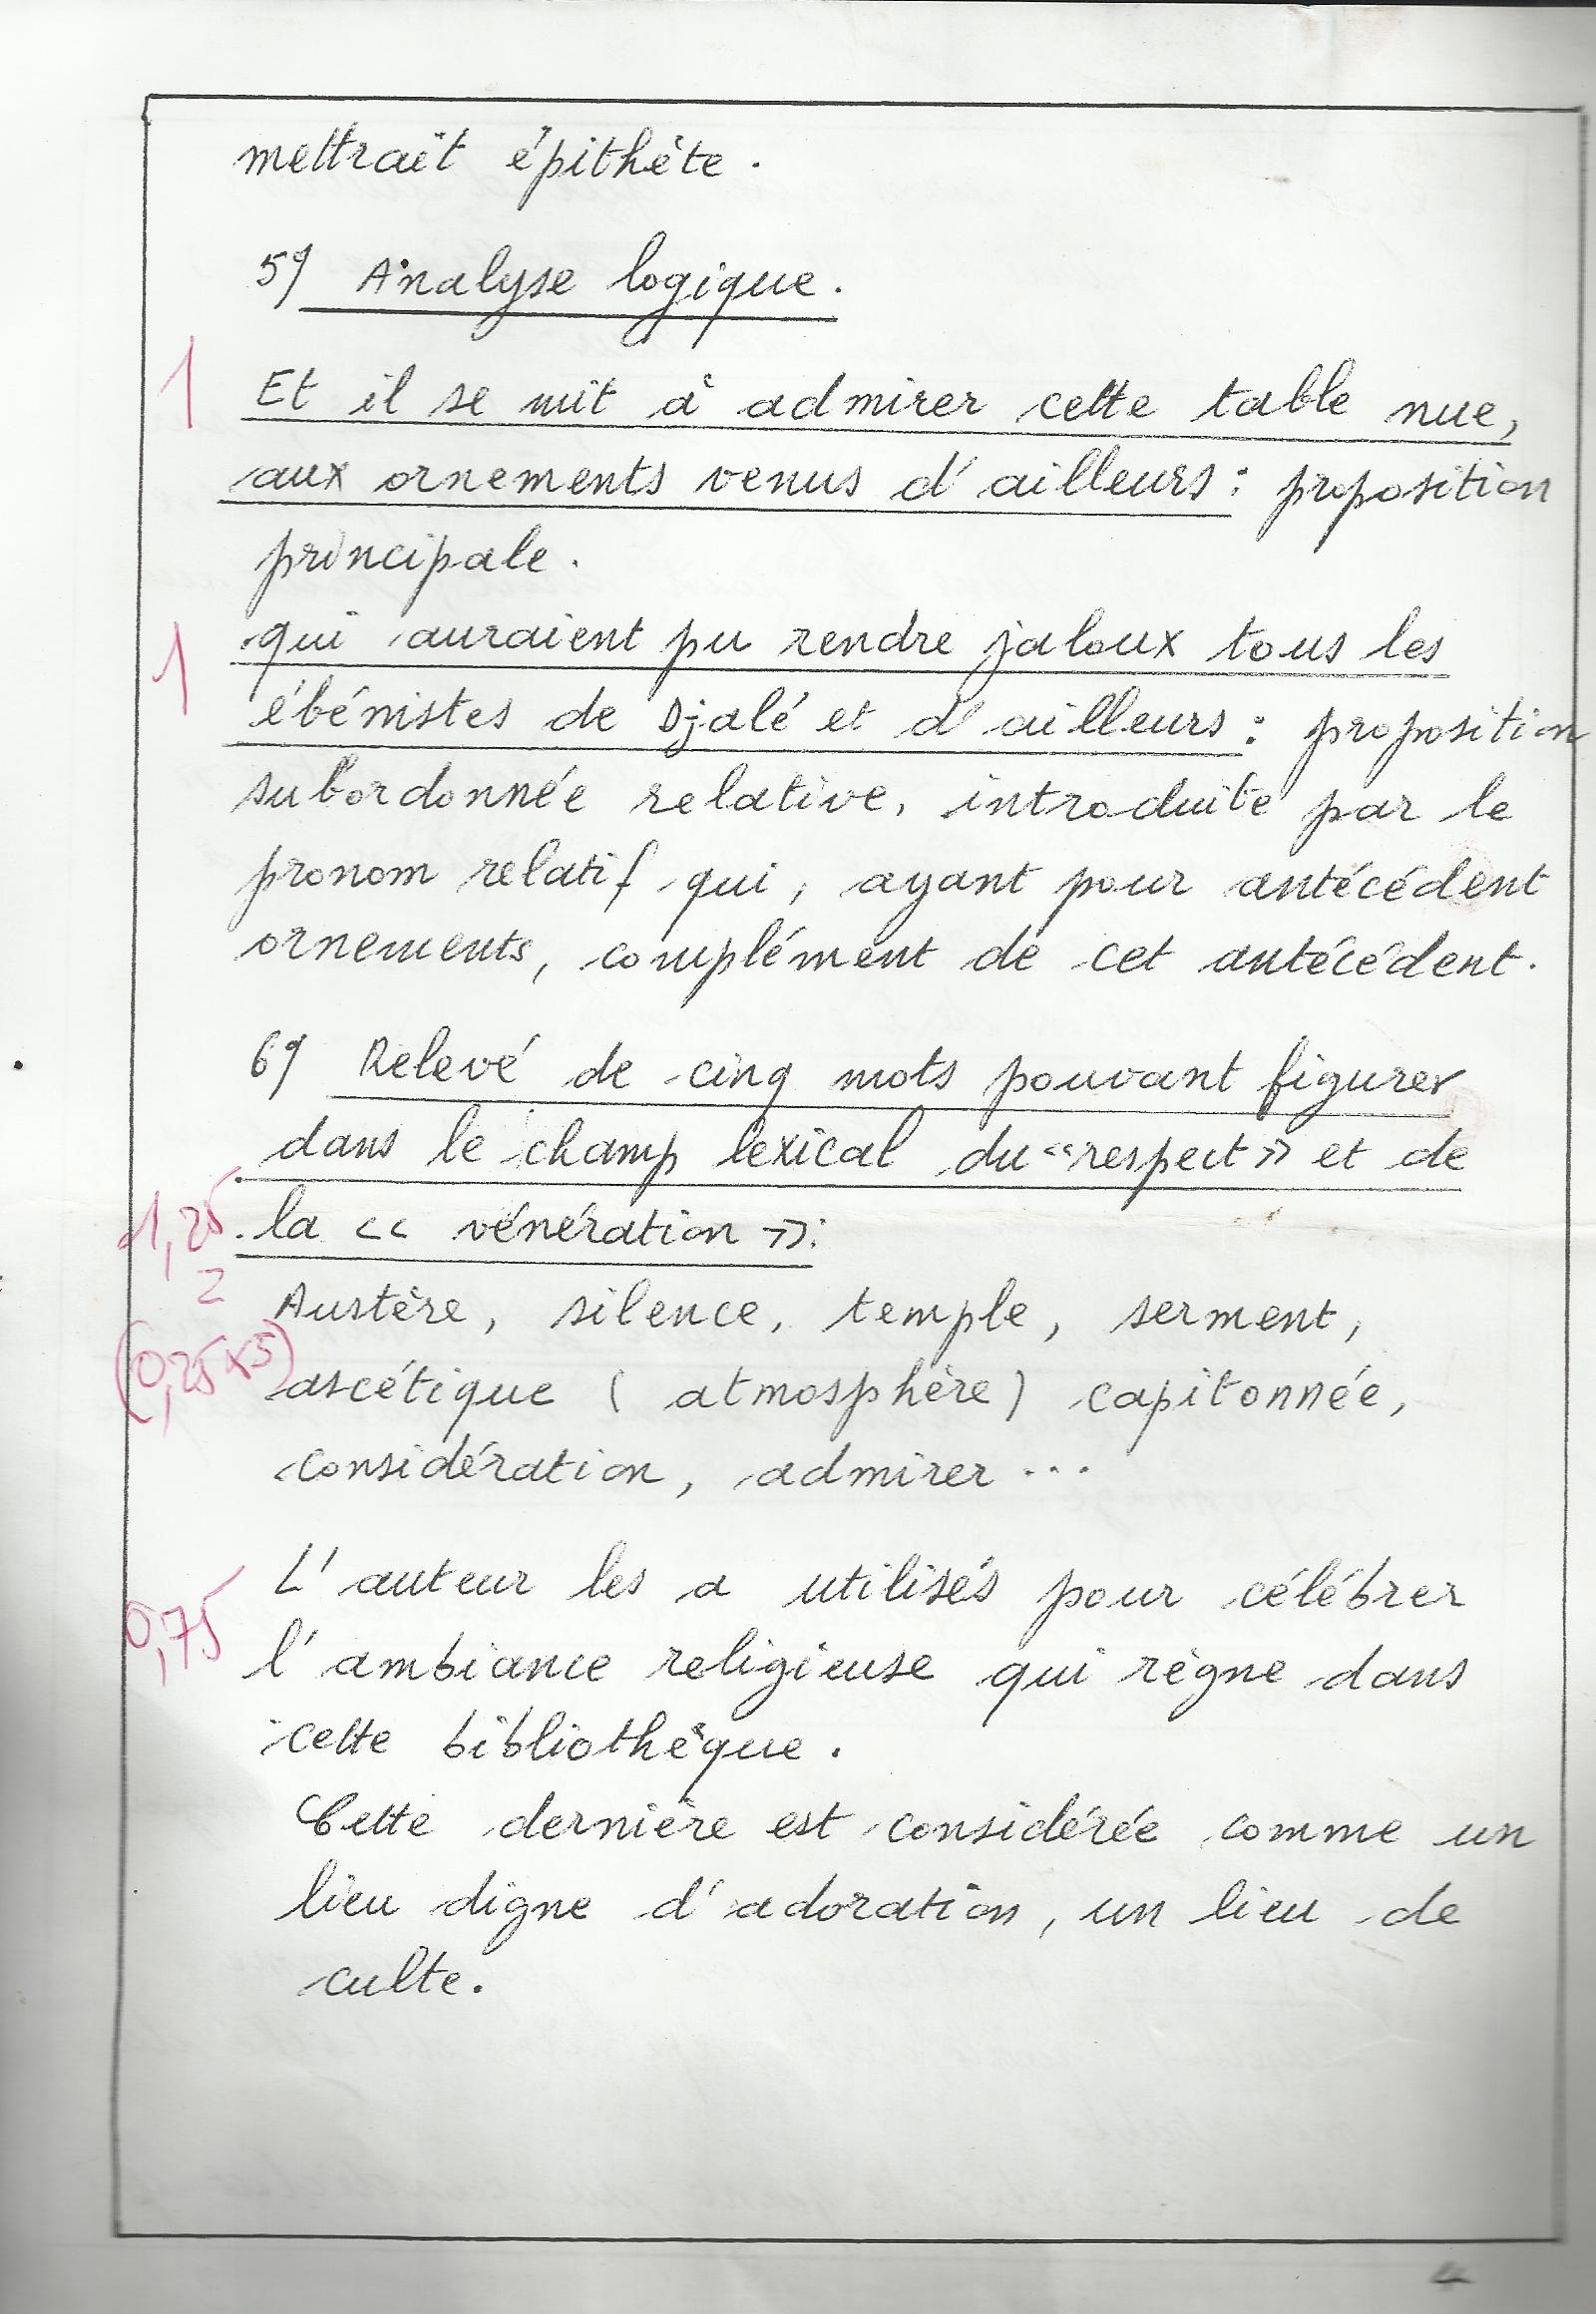 mettrait épithète.
5°/ Analyse logique.
1 Et il se mit à admirer cette table nue,
aux ornements venus d'ailleurs : proposition
principale.
1 qui auraient pu rendre jaloux tous les
ébénistes de Djalé et d'ailleurs : proposition
subordonnée relative, introduite par le
pronom relatif qui, ayant pour antécédent
ornements, complément de cet antécédent.
6°/ Relevé de cinq mots pouvant figurer
dans le champ lexical du «respect» et de
1,25 la « vénération »:
2 Austère, silence, temple, serment,
(0,25x5) ascétique (atmosphère) capitonnée,
considération, admirer ...
0,75 L'auteur les a utilisés pour célébrer
l'ambiance religieuse qui règne dans
cette bibliothèque.
Cette dernière est considérée comme un
lieu digne d'adoration, un lieu de
culte.
4